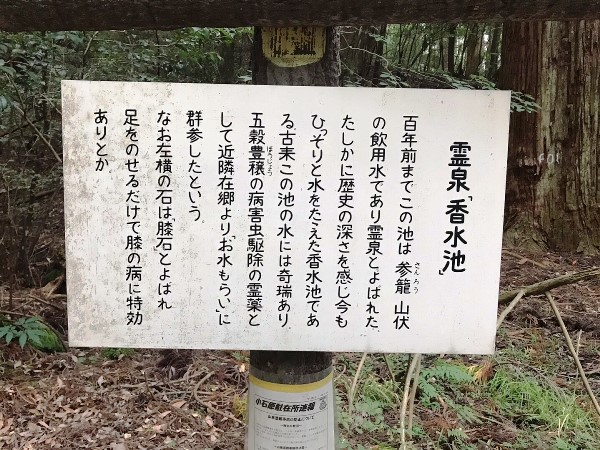 霊泉「香水池」
百年前までこの池は参籠山伏
さんろう
の飲用水であり霊泉とよばれた
たしかに歴史の深さを感じ今も
ひっそりと水をたたえた香水池であ
る古来この池の水には奇瑞あり
五穀豊穣の病害虫駆除の霊薬と
ほうじょう
して近隣在郷より「お水もらい」に
群参したという
なお左横の石は「膝石」とよばれ
足をのせるだけで膝の病に特効
ありとか
小石原駐在所速報